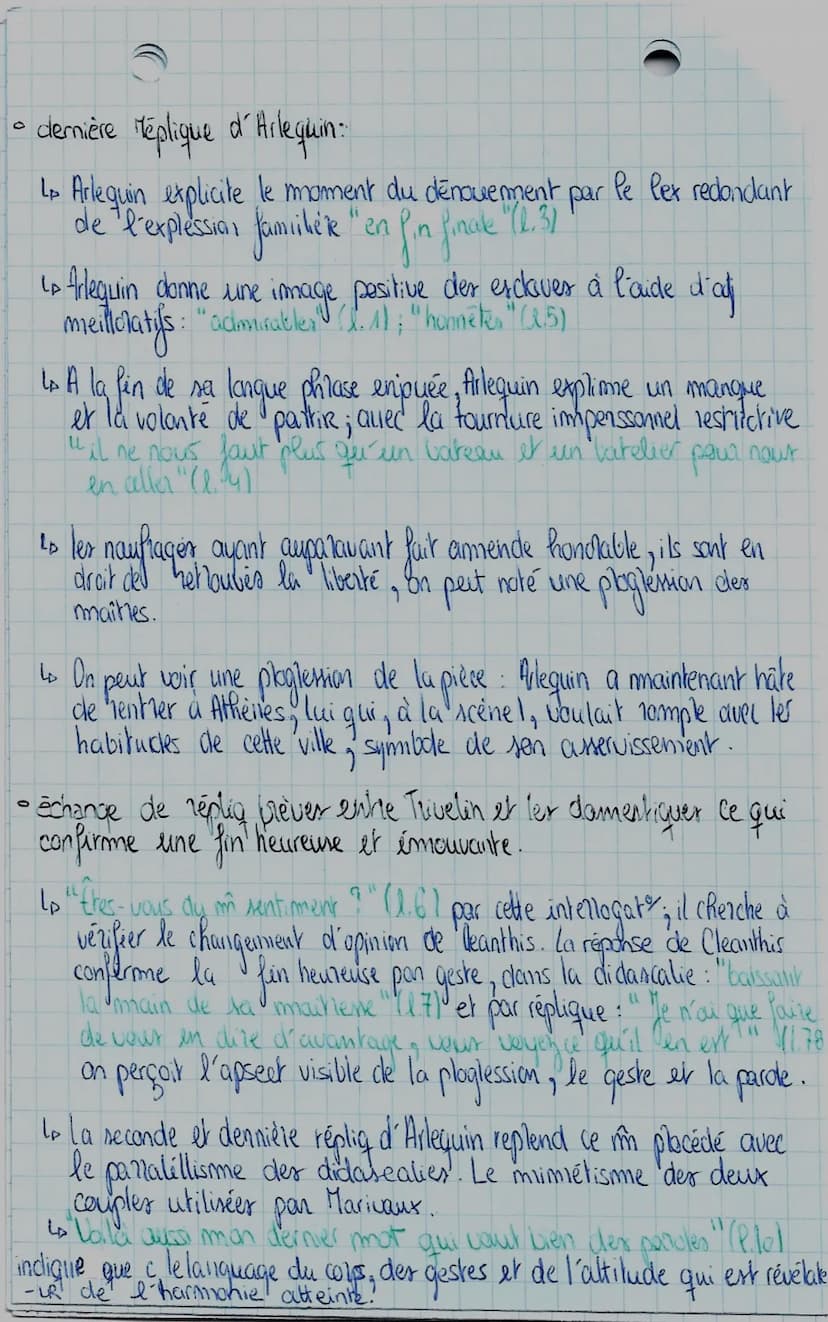 ° dernière réplique d'Arlequin:
↳ Arlequin explicite le moment du dénouement par le lex redondant
de l'expression familière "en fin finale" (l.3)
↳ Arlequin donne une image positive des esclaves à l'aide d'adj
meilloratifs: "admirables" (l.1) ; "honnêtes" (l.5)
↳ A la fin de sa longue phrase enjouée, Arlequin exprime un manque
et la volonté de partir ; avec la tournure impersonnel restrictive
"il ne nous faut plus qu'un bateau et un batelier pour nous
en aller" (l.4)
↳ les naufragés ayant auparavant fait amende honorable, ils sont en
droit de retrouvés la liberté, on peut noté une progression des
maîtres.
↳ On peut voir une progression de la pièce : Arlequin a maintenant hâte
de rentrer à Athènes, lui qui, à la scène 1, voulait rompre avec les
habitudes de cette ville, symbole de son asservissement.
° échange de répliq brèves entre Trivelin et les domestiques ce qui
confirme une fin heureuse et émouvante.
↳ "Êtes-vous du m̂ sentiment ?" (l.6) par cette interrogat°, il cherche à
vérifier le changement d'opinion de Cleanthis. La réponse de Cleanthis
confirme la fin heureuse par geste, dans la didascalie : "baissant
la main de sa maitresse" (l.7) et par réplique : "Je n'ai que faire
de vous en dire d'avantage, vous voyez ce qu'il en est" (l.78
on perçoit l'apsect visible de la progression, le geste et la parole.
↳ La seconde et dernière répliq d'Arlequin reprend ce m̂ procédé avec
le parralèllisme des didascalies. Le mimétisme des deux
couples utilisées par Marivaux.
↳ "Voilà aussi mon dernier mot qui vaut bien des paroles" (l.10)
indique que c le language du corps, des gestes et de l'attitude qui est révélate
-UR de l'harmonie atteinte.